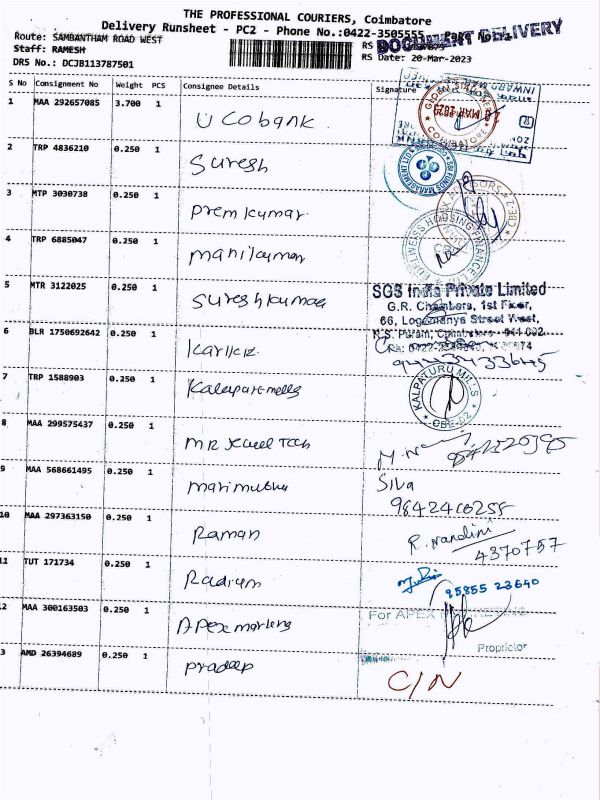 THE PROFESSIONAL COURIERS, Coimbatore
Delivery Runsheet - PC2 - Phone No.:0422-3505555
Route: SAMBANTHAM ROAD WEST
DOCUMENT DELIVERY
Staff: RAMESH
RS Date: 20-Mar-2023
DRS No.: DCJB113787501
S No Consignment No Weight PCS Consignee Details Signature
1 MAA 292657085 3.700 1 UCO bank
2 TRP 4836210 0.250 1 Suresh
3 MTP 3030738 0.250 1 Prem kumar
4 TRP 6885047 0.250 1 manikumar
5 MTR 3122025 0.250 1 Sureshkumar
SGS India Private Limited
G.R. Chambers, 1st Floor,
66, Logamanya Street West,
R.S. Puram, Coimbatore - 641 002.
6 BLR 1750692642 0.250 1
7 TRP 1588903 0.250 1
KALPATURU MILLS
CBE-02
8 MAA 299575437 0.250 1 MR Jewel Tech
9 MAA 568661495 0.250 1 marimuthu
Siva
9842410258
10 MAA 297363150 0.250 1 Raman
R. Nandini
4370757
11 TUT 171734 0.250 1 Radium
95855 23640
12 MAA 300163503 0.250 1 Apex marketing
For APEX MARKETING
Proprietor
13 AMD 26394689 0.250 1 Pradeep
C/N